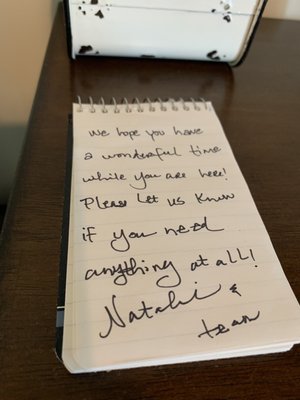 We hope you have
a wonderful time
while you are here!
Please let us know
if you need
anything at all!
Natalie &
team